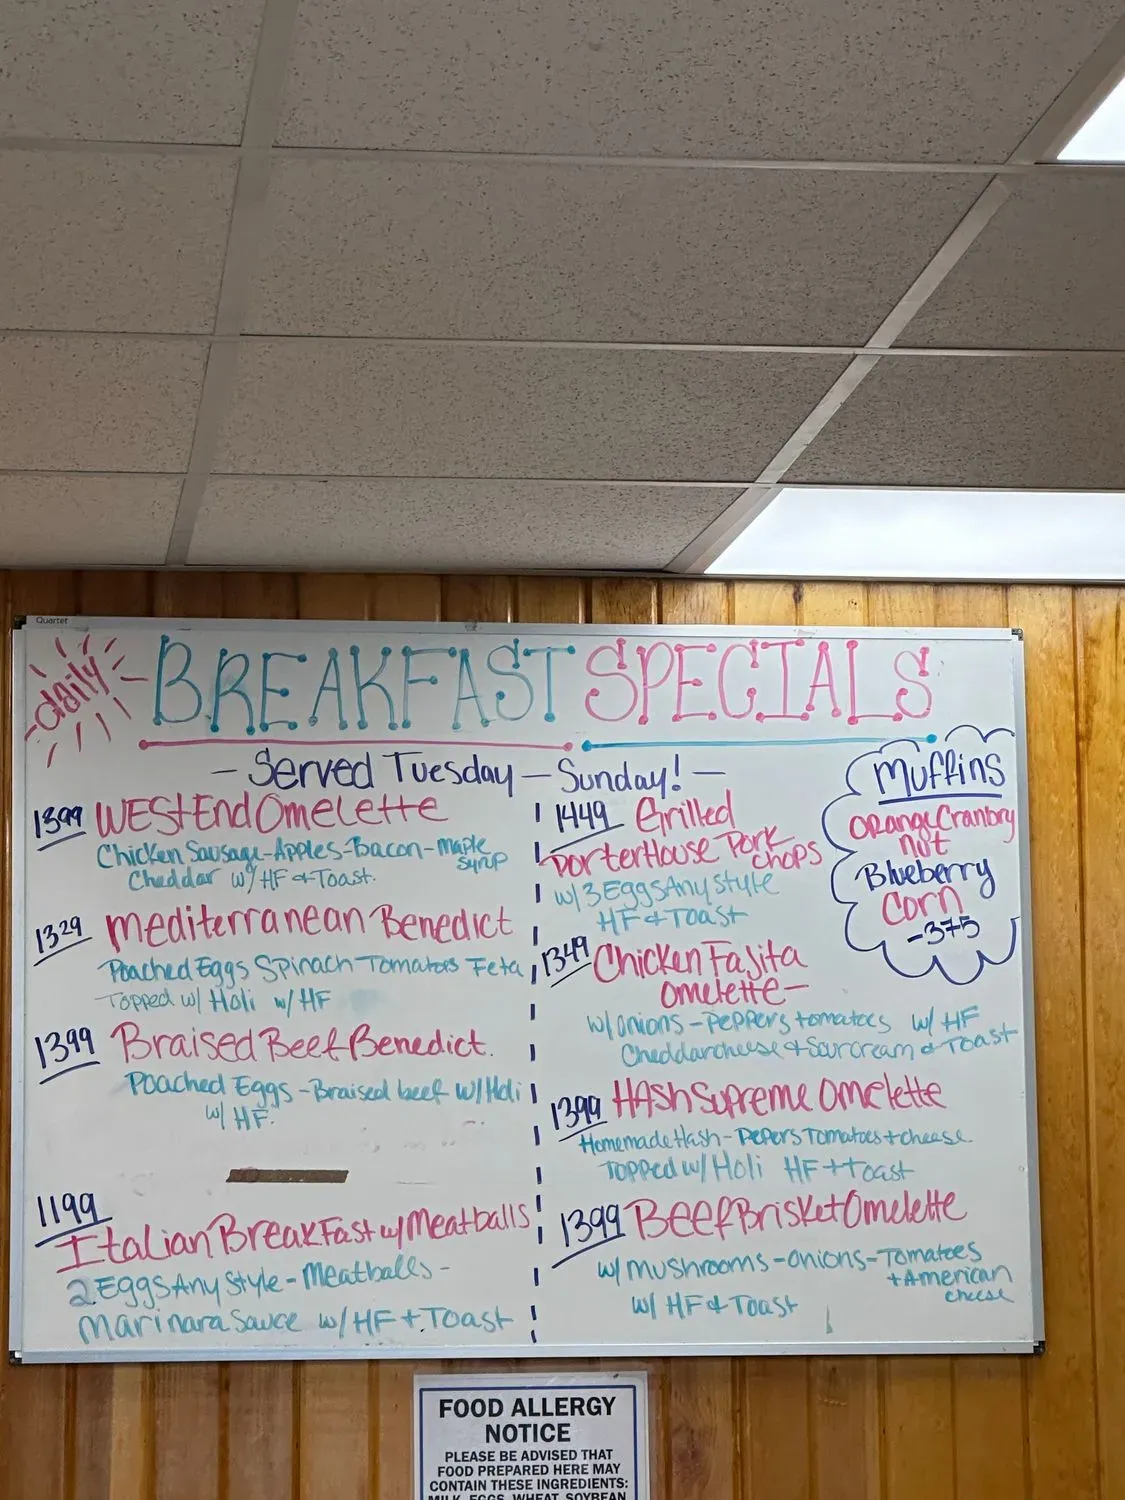 Quartet
daily
BREAKFAST SPECIALS
- Served Tuesday - Sunday! -
1399 WEStEndOmelette
Chicken Sausage-Apples-Bacon-maple syrup
Cheddar w/ HF + Toast.
1329 mediterranean Benedict
Poached Eggs Spinach Tomatoes Feta
Topped w/ Holi w/ HF
1399 Braised Beef Benedict.
Poached Eggs - Braised beef w/ Holi
w/ HF.
1199
Italian BreakFast w/ Meatballs
2 Eggs Any Style - Meatballs -
Marinara Sauce w/ HF + Toast
1449 Grilled
PorterHouse Pork chops
w/ 3 Eggs Any Style
HF + Toast
1349 Chicken Fajita
omelette-
w/ onions - peppers + tomatoes w/ HF
Cheddar cheese + Sour cream + Toast
1399 HAsh Supreme Omelette
Homemade Hash - Pepers Tomatoes + cheese
Topped w/ Holi HF + Toast
1399 Beef Brisket Omelette
w/ mushrooms - onions - Tomatoes
+ American
cheese
w/ HF + Toast
muffins
Orange Cranbry
nut
Blueberry
Corn
-375
FOOD ALLERGY
NOTICE
PLEASE BE ADVISED THAT
FOOD PREPARED HERE MAY
CONTAIN THESE INGREDIENTS:
MILK, EGGS, WHEAT, SOYBEAN,